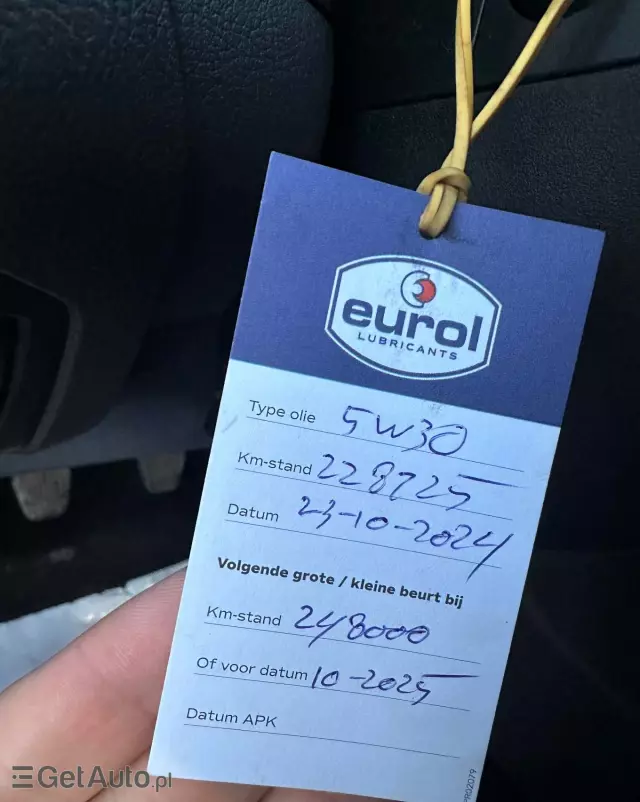 eurol
LUBRICANTS
Type olie 5W30
Km-stand 228725
Datum 23-10-2024
Volgende grote / kleine beurt bij
Km-stand 248000
Of voor datum 10-2025
Datum APK
PR02079
GetAuto.pl